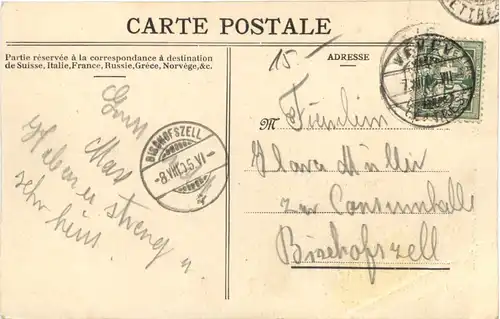 ETTRES
CARTE POSTALE
Partie réservée à la correspondance à destination
de Suisse, Italie, France, Russie, Grèce, Norvège, &c.
ADRESSE
15.-
VEVEY
LETTRES
Gruss
Max
Haben es streng u.
sehr heiss.
BISCHOFSZELL
-8.VIII.05.VI-
M Fräulein
Klara Müller
zur Consumhalle
Bischofszell